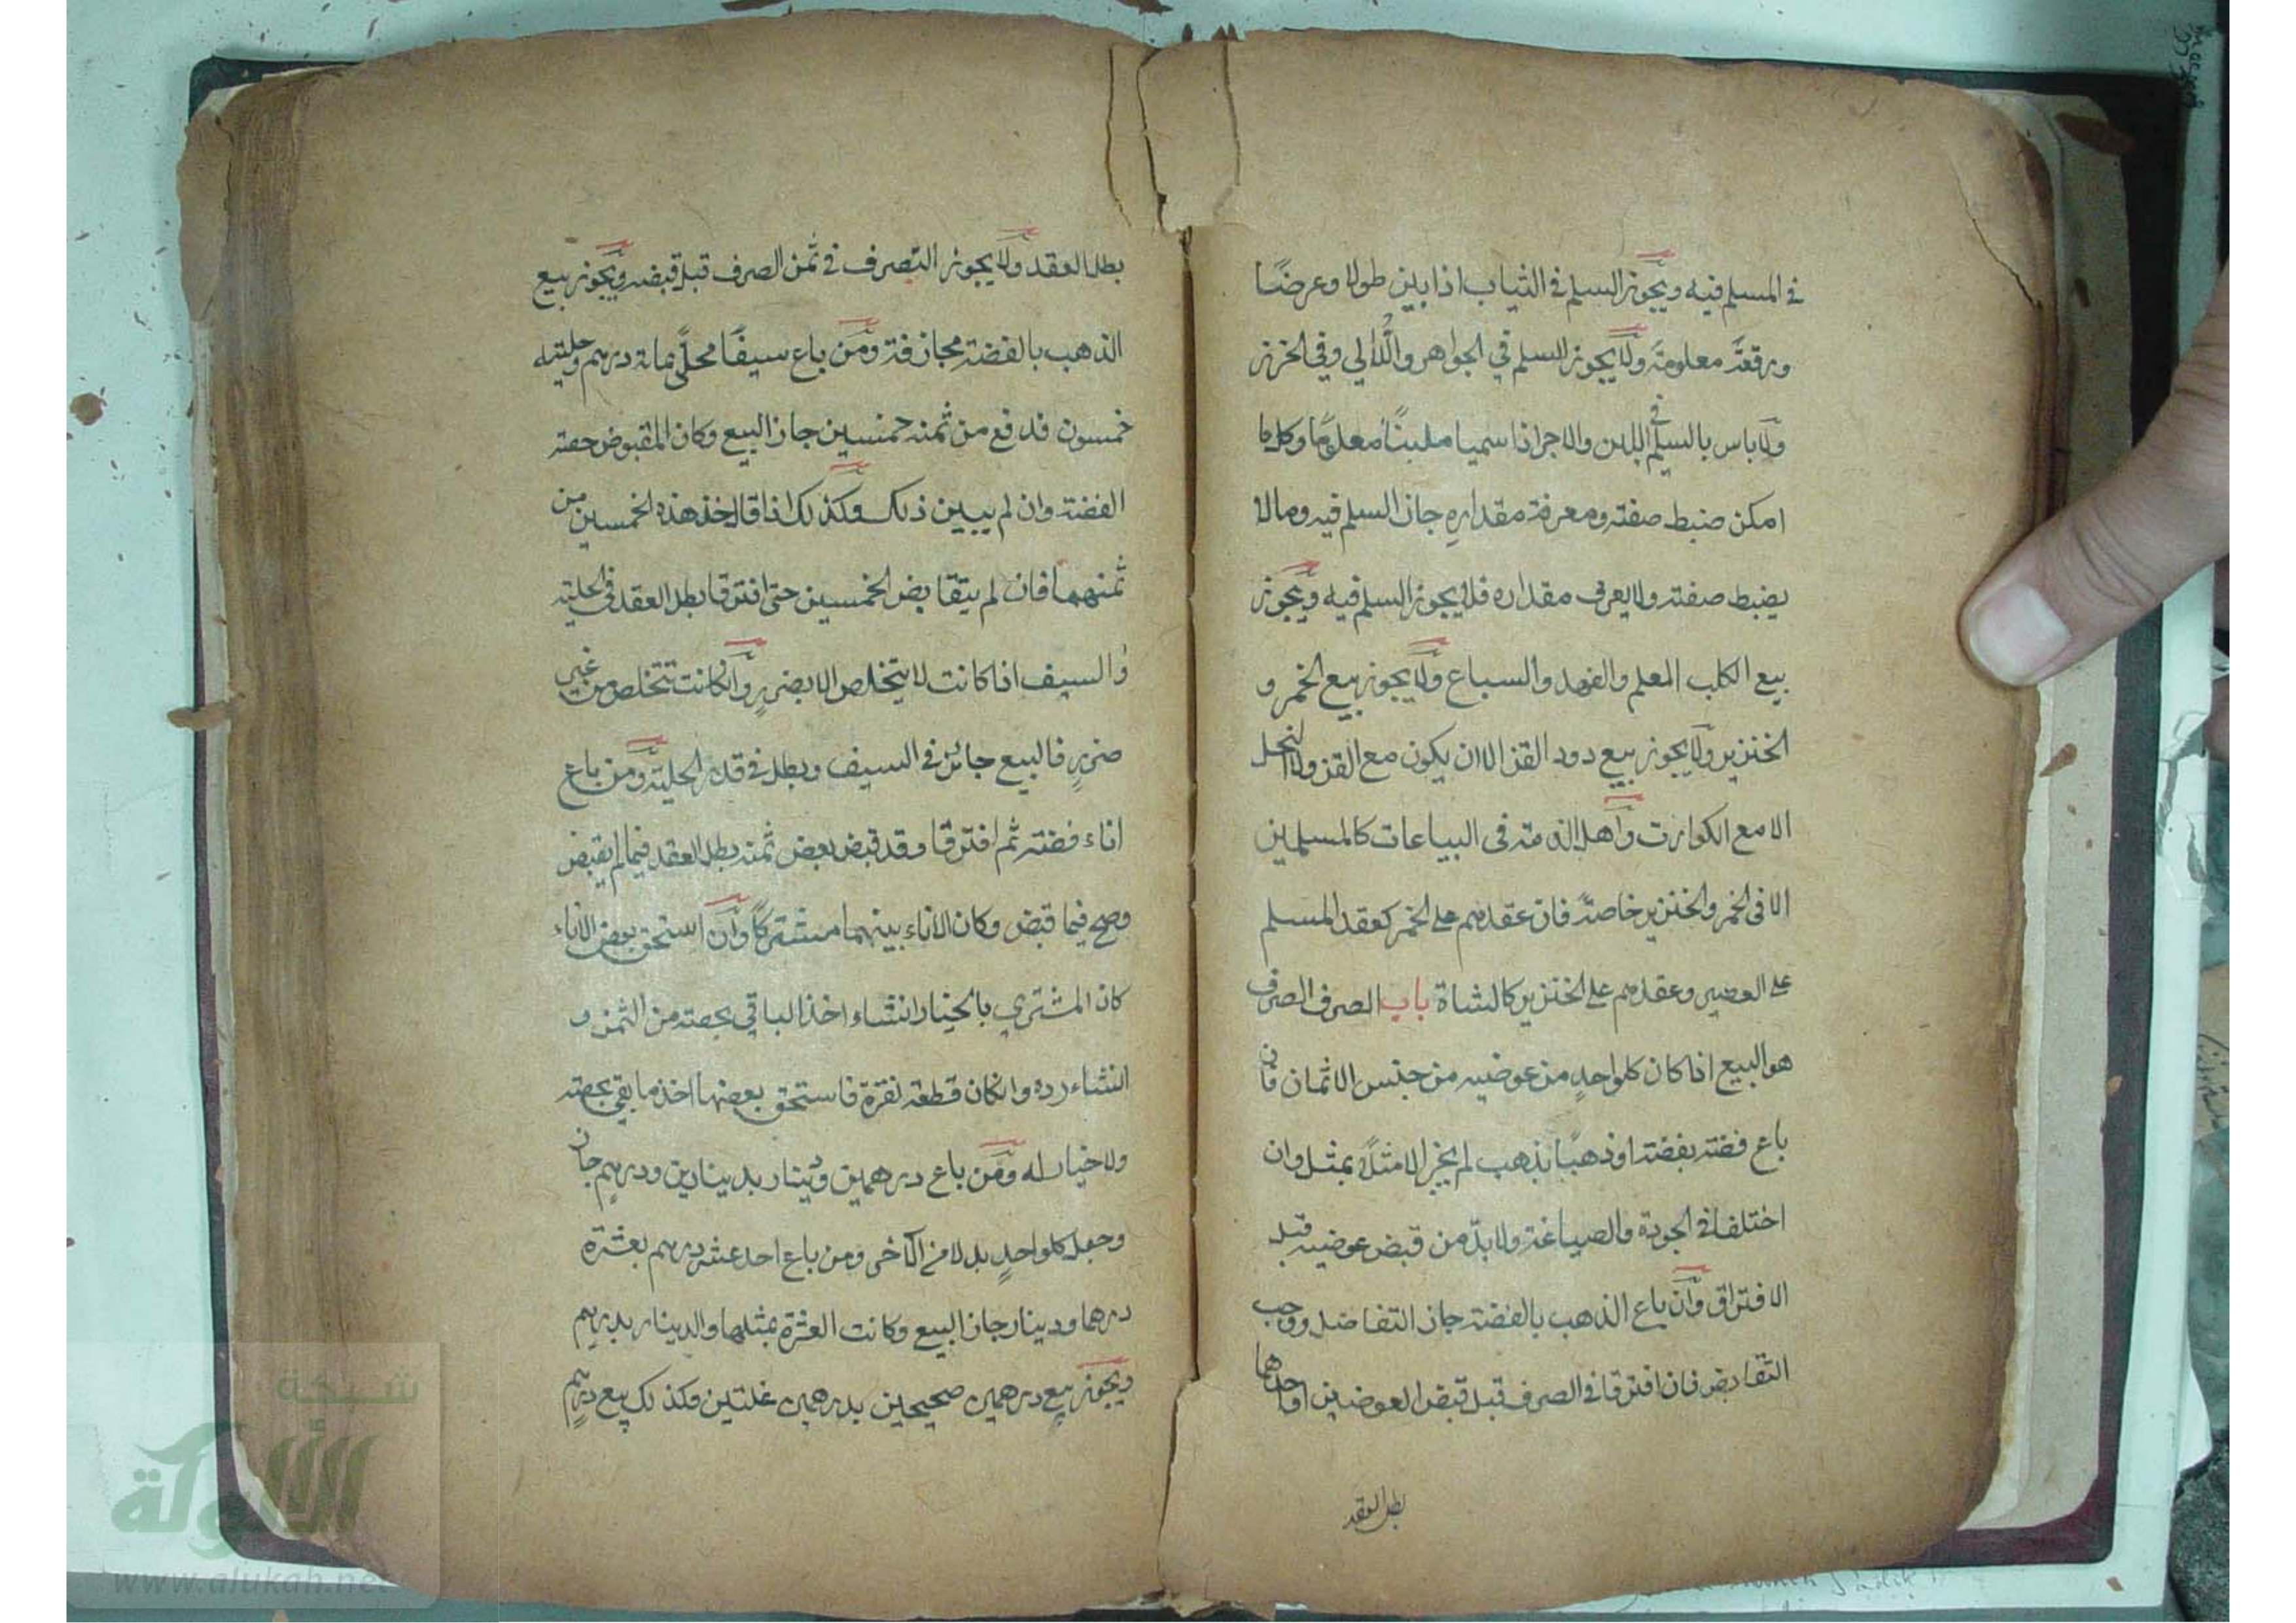 في المسلم فيه ويجوز السلم في الثياب اذا بين طولا وعرضًا
ورقعةً معلومة ولا يجوز السلم في الجواهر واللُّالي وفي الخرز
ولا باس بالسلم في اللبن والاجر اذا سميا ملبنًا معلومًا وكل ما
امكن ضبط صفته ومعرفة مقداره جاز السلم فيه وما لا
يضبط صفته ولا يعرف مقداره فلا يجوز السلم فيه ويجوز
بيع الكلب المعلم والفهد والسباع ولا يجوز بيع الخمر و
الخنزير ولا يجوز بيع دود القز الا ان يكون مع القز ولا النحل
الا مع الكوارت واهل الذمة في البياعات كالمسلمين
الا في الخمر والخنزير خاصةً فان عقدهم على الخمر كعقد المسلم
على العصير وعقدهم على الخنزير كالشاة باب الصرف الصرف
هو البيع اذا كان كلواحدٍ من عوضيه من جنس الاثمان فان
باع فضة بفضة او ذهبًا بذهب لم يجز الا مثلًا بمثل وان
اختلفا في الجودة والصياغة ولا بدّ من قبض عوضيه قبل
الافتراق وان باع الذهب بالفضة جاز التفاضل ووجب
التقابض فان افترقا في الصرف قبل قبض العوضين او احدهما
بطل العقد
بطل العقد ولا يجوز التصرف في ثمن الصرف قبل قبضه ويجوز بيع
الذهب بالفضة مجازفة ومن باع سيفًا محلًّى بمائة درهم وحليته
خمسون فدفع من ثمنه خمسين جاز البيع وكان المقبوض حصة
الفضة وان لم يبين ذلك وكذلك اذا قال خذ هذه الخمسين من
ثمنهما فان لم يتقابض الخمسين حتى افترقا بطل العقد في الحلية
والسيف اذا كانت لا يتخلص الا بضررٍ وانكانت تتخلص من غير
ضررٍ فالبيع جائز في السيف وبطل في قدر الحلية ومن باع
اناء فضة ثم افترقا وقد قبض بعض ثمنه بطل العقد فيما لم يقبض
وصح فيما قبض وكان الاناء بينهما مشتركًا وان استحق بعض الاناء
كان المشتري بالخيار انشاء اخذ الباقي بحصته من الثمن و
انشاء رده وانكان قطعة نقرة فاستحق بعضها اخذ ما بقي بحصته
ولا خيار له ومن باع درهمين ودينار بدينارين ودرهمٍ جاز
وجعل كلواحدٍ بدلا من الآخر ومن باع احد عشر درهم بعشرة
درهما ودينار جاز البيع وكانت العشرة بمثلها والدينار بدرهم
ويجوز بيع درهمين صحيحين بدرهمين غلتين وكذلك بيع درهمٍ
شبكة
الألوكة
www.alukah.net